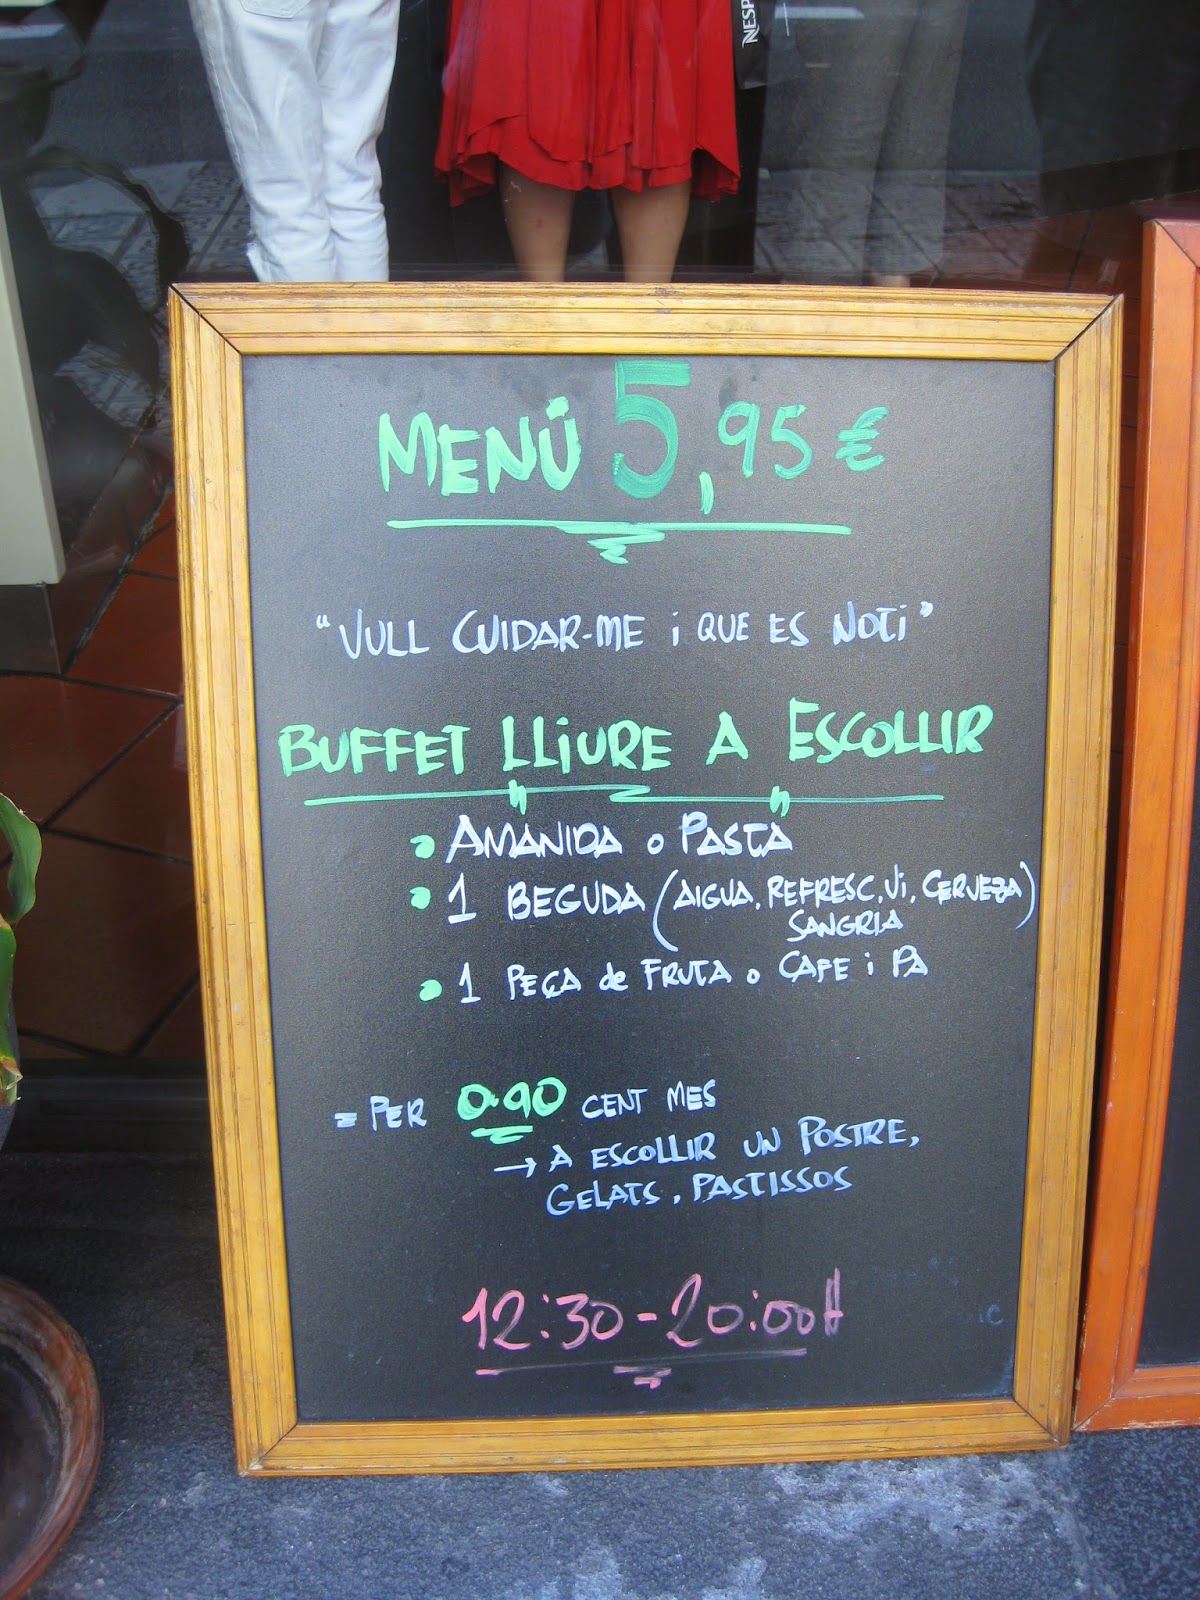 NESP
MENÚ 5,95 €
"VULL CUIDAR-ME i QUE ES NOTi"
BUFFET LLiURE A ESCOLLIR
AMANIDA o PASTA
1 BEGUDA (AIGUA, REFRESC, Vi, CERVEZA)
SANGRIA
1 PEÇA de FRUTA o CAFE i PA
= PER 0.90 CENT MES
→ A ESCOLLIR UN POSTRE,
GELATS, PASTISSOS
12:30-20:00H